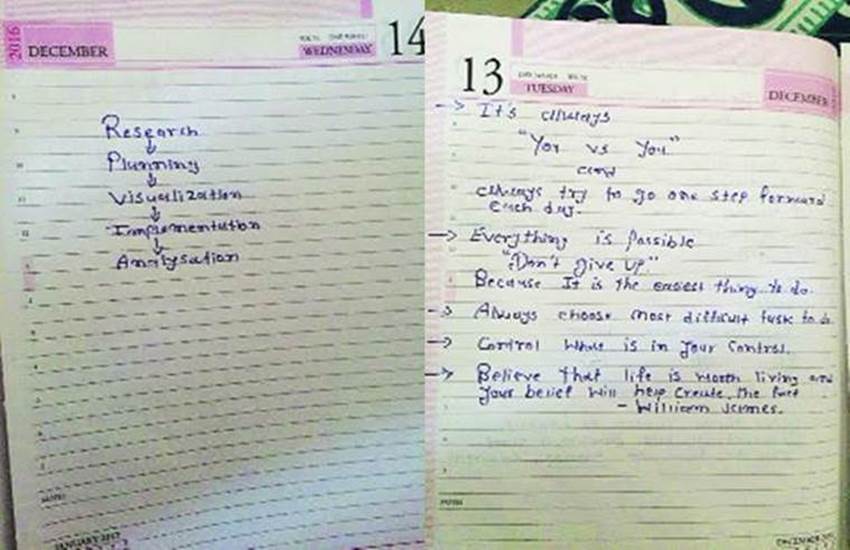 2016
DECEMBER
WEDNESDAY
14
Research
↓
Planning
↓
Visualization
↓
Implementation
↓
Analysation
NOTES
JANUARY 2017
13
TUESDAY
DECEMBER
→ It's always
"You vs You"
and
always try to go one step forward
each day.
→ Everything is possible
"Don't give up"
Because It is the easiest thing to do.
→ Always choose most difficult task to do
→ Control what is in your control.
→ Believe that life is worth living and
your belief will help create the fact
- William James.
NOTES